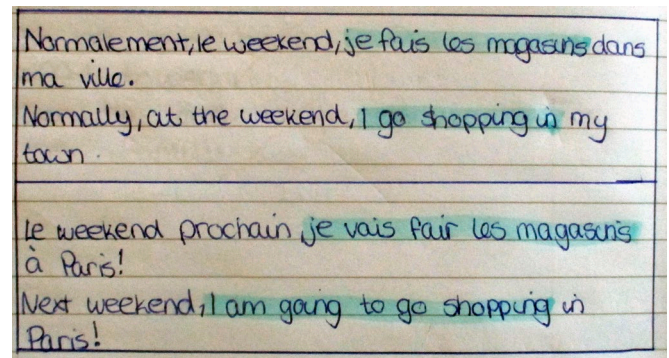 Normalement, le weekend, je fais les magasins dans
ma ville.
Normally, at the weekend, I go shopping in my
town.
Le weekend prochain je vais fair les magasins
à Paris!
Next weekend, I am going to go shopping in
Paris!